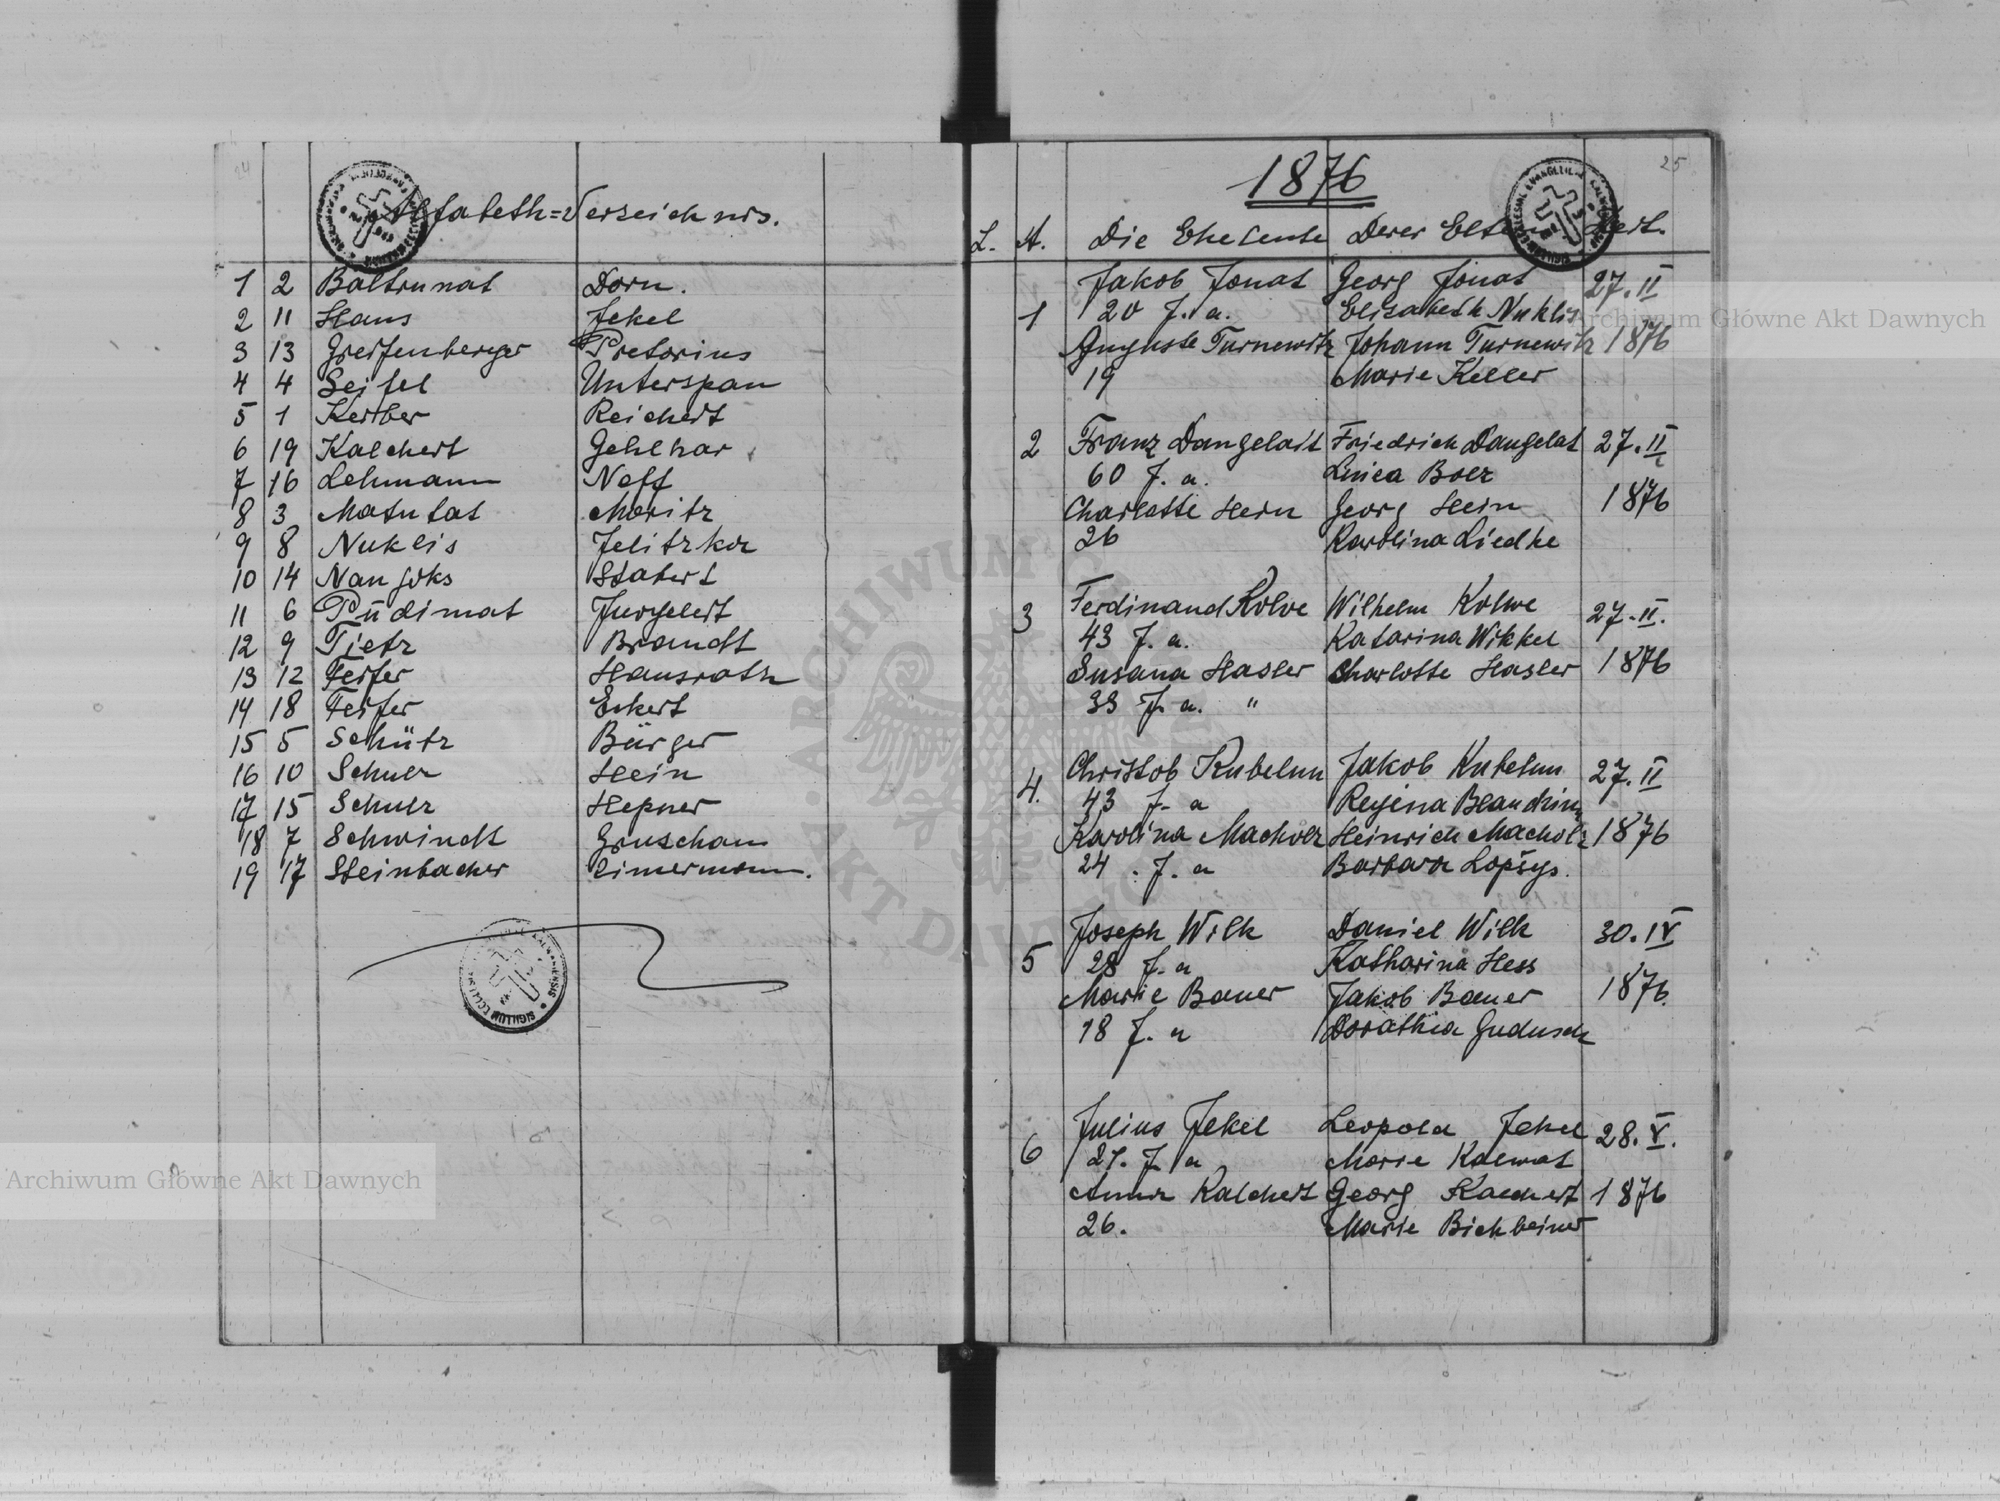 24
Alfabeth=Verzeichnis.
1 2 Baltrunat Dorn.
2 11 Hans Jekel
3 13 Greifenberger Pretorius
4 4 Seifel Unterspan
5 1 Kerber Reichert
6 19 Kalchert Gehlhar
7 16 Lehmann Neff
8 3 Matutat Moritz
9 8 Nuklis Jelitzka
10 14 Nanjoks Stabert
11 6 Pūdimat Jurgeleit
12 9 Tietz Brandt
13 12 Feifer Hausrath
14 18 Feifer Eckert
15 5 Schütz Bürger
16 10 Schulz Hein
17 15 Schulz Hepner
18 7 Schwindt Gruscham
19 17 Steinbacher Zimermann.
25
1876
L. A. Die Eheleute Derer Eltern
Jakob Jonat Georg Jonat 27.II
1 20 J. a. Elisabeth Nuklis
Auguste Turnewitz Johann Turnewitz 1876
19 Marie Keller
2 Franz Dangelait Friedrich Dangelat 27.II
60 J. a. Luiea Bolz
Charlotte Hern Georg Hern 1876
26 Karolina Liedke
3 Ferdinand Kolve Wilhelm Kolwe 27.II.
43 J. a. Katarina Wikkel
Susana Hasler Charlotte Hasler 1876
33 J. a. "
4. Christob Kubelun Jakob Kubelun 27.II
43 J. a Regina Blaudzun
Karolina Macholz Heinrich Macholz 1876
24 . J. a Barbara Lopšys.
Joseph Wilk Daniel Wilk 30.IV
5 28 J. a Katharina Hess
Marie Bauer Jakob Bauer 1876.
18 J. a Dorathia Gudusch
Julius Jekel Leopold Jekel 28.V.
6 27. J. a Marie Kalwat
Anna Kalchert Georg Kalchert 1876
26. Marie Bichbeiner
Archiwum Główne Akt Dawnych
Archiwum Główne Akt Dawnych
ARCHIWUM GŁÓWNE AKT DAWNYCH